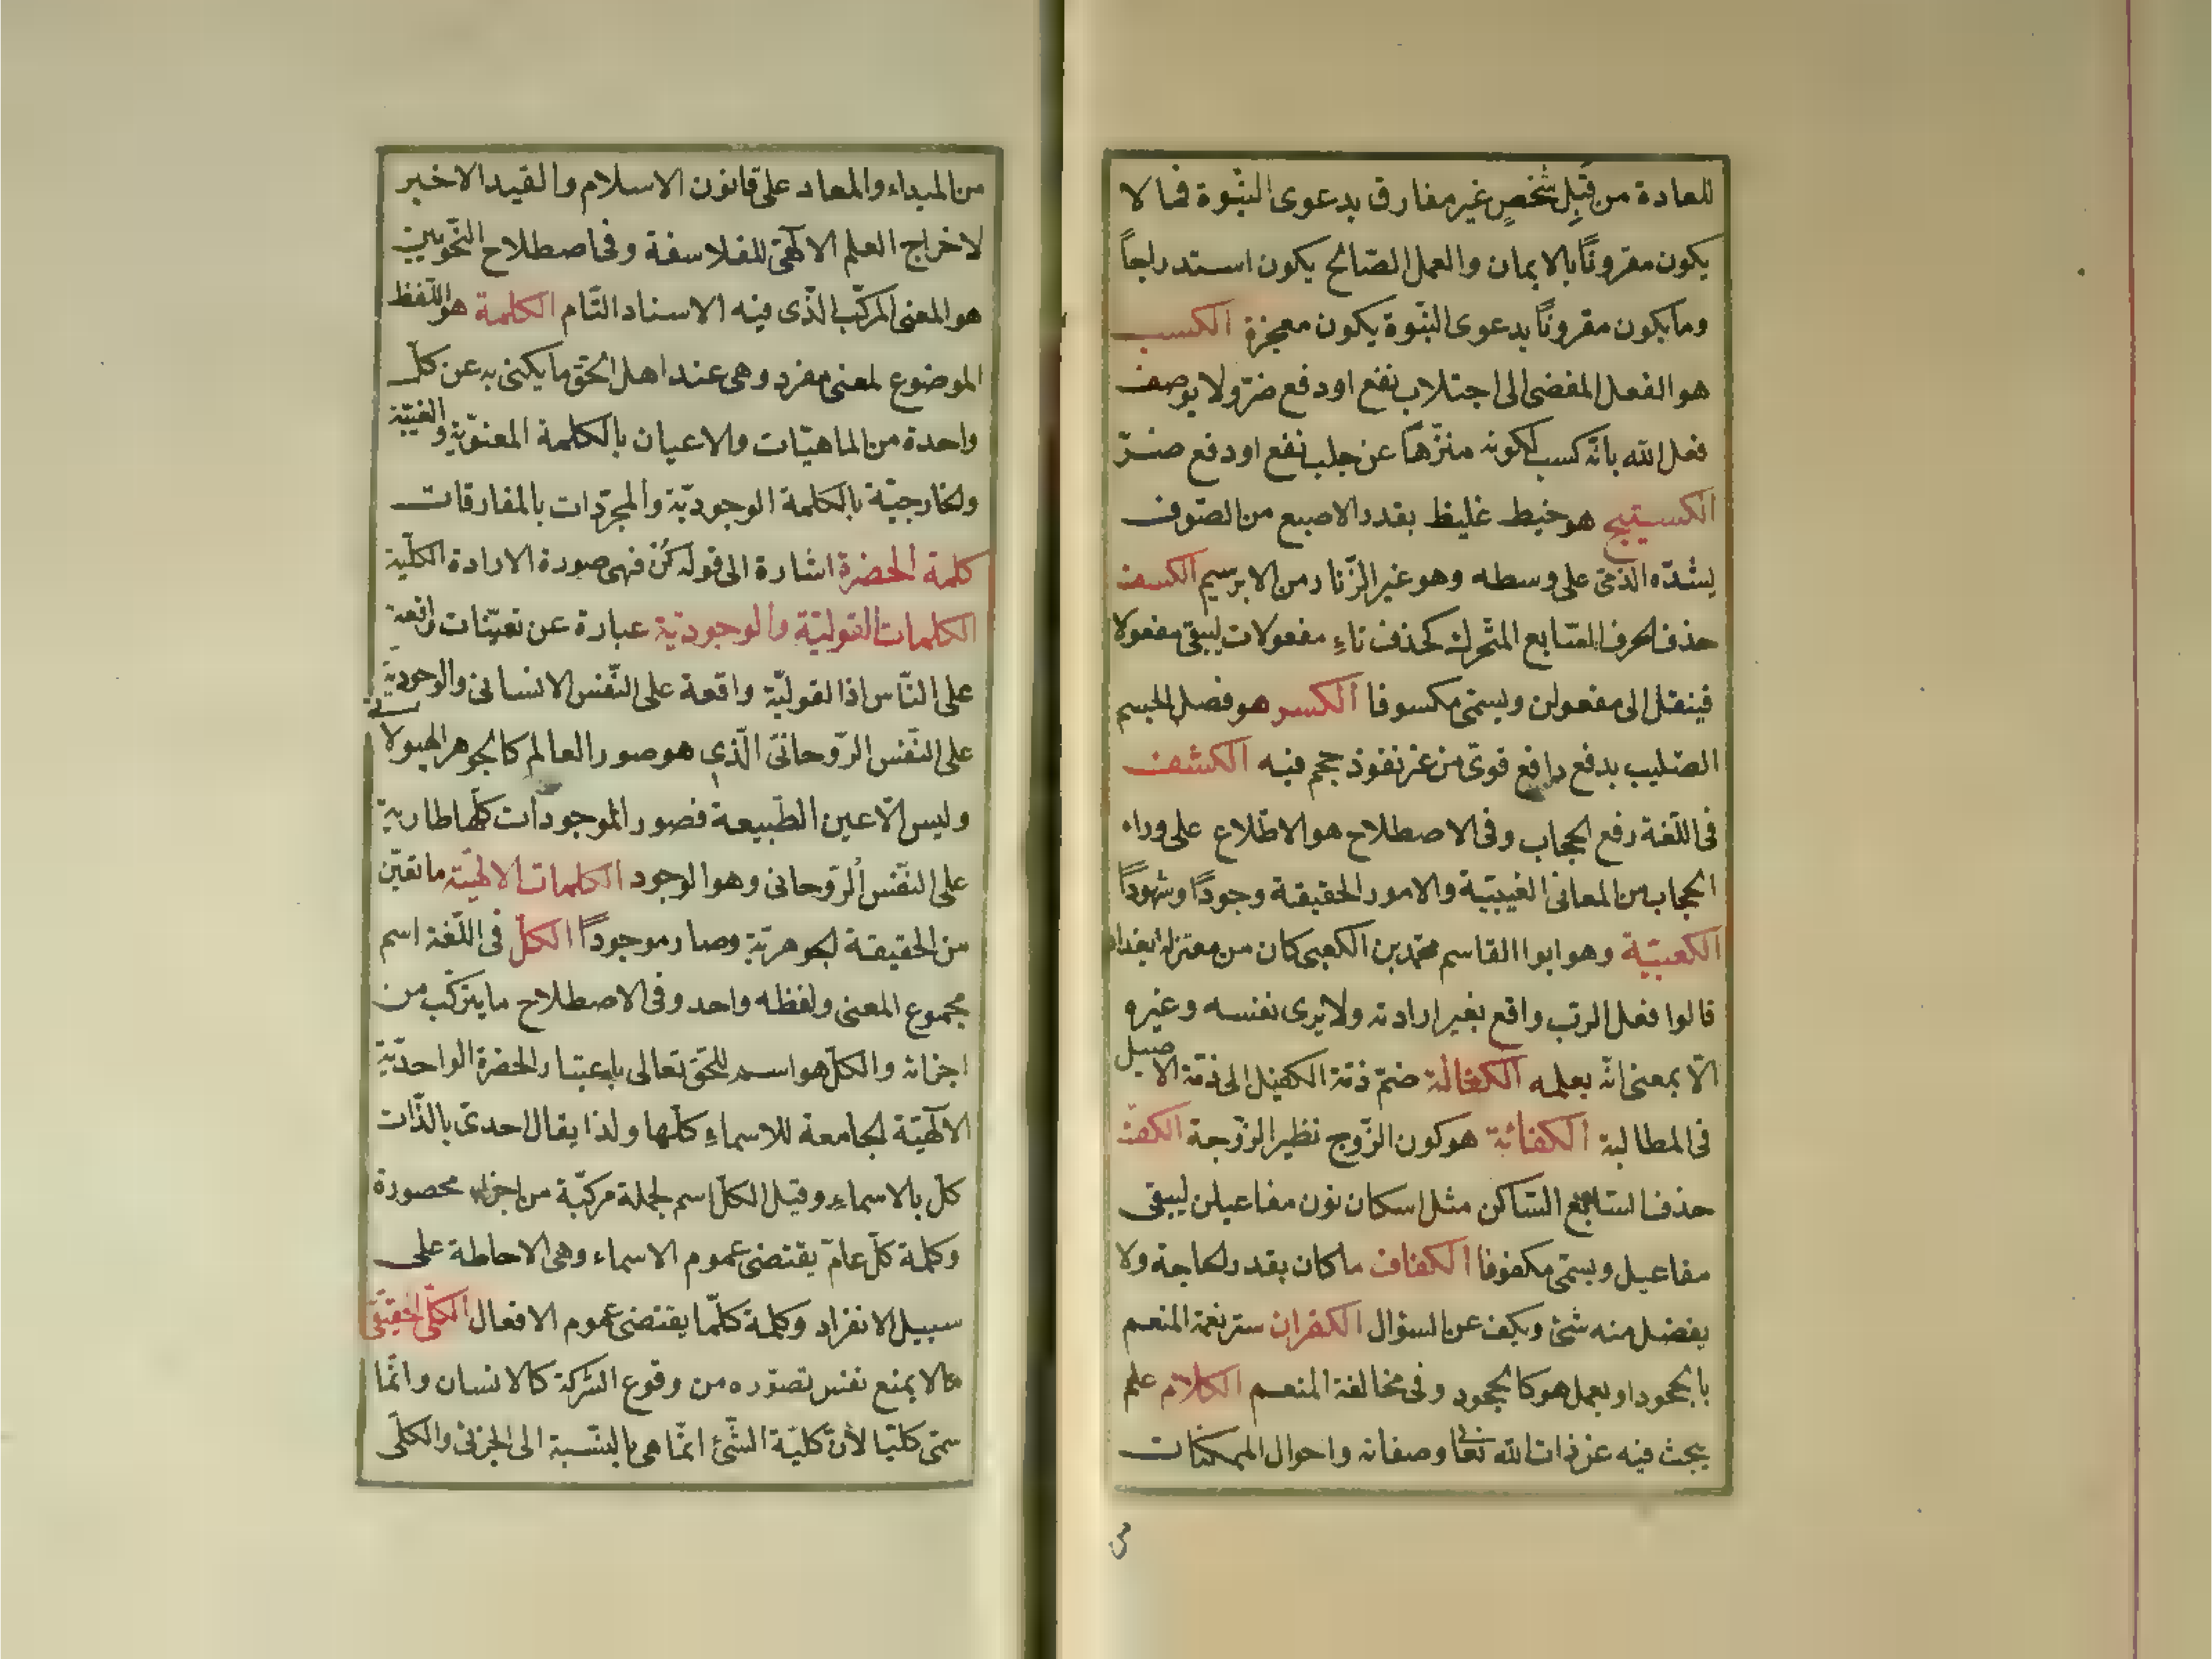 للعادة من قِبَلِ شخصٍ غير مفارق بدعوى النبّوة فما لا
يكون مقرونًا بالايمان والعمل الصّالح يكون استدراجاً
وما يكون مقروناً بدعوى النبّوة يكون معجزة الكسب
هو الفعل المفضى الى اجتلاب نفع او دفع ضرّ ولا يوصف
فعل الله بانّه كسب لكونه منزّهاً عن جلب نفع او دفع ضرّ
الكستيج هو خيط غليظ بقدر الاصبع من الصّوف
يشدّه الذمّى على وسطه وهو غير الزّنار من الابرسيم الكسف
حذف الحرف السّابع المتحرك كحذف تاءِ مفعولات ليبقى مفعولا
فينقل الى مفعولن ويسمّى مكسوفا الكسر هو فصل الجسم
الصّليب بدفع دافع قوىّ من غر نفوذ حجم فيه الكشف
فى اللّغة رفع الحجاب وفى الاصطلاح هو الاطّلاع على وراء
الحجاب من المعانى الغيبيّة والامور الحقيقة وجودًا وشهودًا
الكعبيّة وهو ابوا القاسم محمّد بن الكعبى كان من معتزلة بغداد
قالوا فعل الربّ واقع بغير ارادته ولا يرى نفسه وغيره
الّا بمعنى انّه يعلمه الكفالة ضمّ ذمّة الكفيل الى ذمّة الاصيل
فى المطالبة الكفائة هو كون الزّوج نظير الزّوجة الكفّ
حذف السّابع السّاكن مثل اسكان نون مفاعيلن ليبقى
مفاعيل ويسمّى مكفوفا الكفاف ما كان بقدر الحاجة ولا
يفضل منه شئ ويكف عن السؤال الكفران ستر نعمة المنعم
بالجحود او بعمل هو كالجحود وفى مخالفة المنعم الكلام علم
يبحث فيه عن ذات الله تعا وصفاته واحوال الممكنات
من المبداء والمعاد على قانون الاسلام والقيد الاخير
لاخراج العلم الالٓهىّ للفلاسفة وفى اصطلاح النّحويين
هو المعنى المركّب الّذى فيه الاسناد التّام الكلمة هو اللّفظ
الموضوع لمعنى مفرد وهى عند اهل الحقّ ما يكنى به عن كلّ
واحدة من الماهيّات والاعيان بالكلمة المعنويّة والغيبيّة
والخارجيّة بالكلمة الوجوديّة والمجرّدات بالمفارقات
كلمة الحضرة اشارة الى قوله كُنْ فهى صورة الارادة الكلّية
الكلمات القوليّة والوجوديّة عبارة عن تعيّنات واقعة
على النّاس اذا القوليّة واقعة على النّفس الانسانى والوجوديّة
على النّفس الرّوحانىّ الّذى هو صور العالم كالجوهر الهيولا
وليس الّا عين الطّبيعة فصور الموجودات كلّها طارية
على النّفس الرّوحانى وهو الوجود الكلمات الالهيّة ما تعيّن
من الحقيقة الجوهريّة وصار موجوداً الكلّ فى اللّغة اسم
مجموع المعنى ولفظه واحد وفى الاصطلاح ما يتركّب من
اجزائه والكلّ هو اسم للحقّ تعالى باعتبار الحضرة الواحديّة
الالٓهيّة الجامعة للاسماءِ كلّها ولذا يقال احدىّ بالذّات
كلّ بالاسماءِ وقيل الكلّ اسم لجملة مركّبة من اجزاء محصورة
وكلمة كلّ عامّ يقتضى عموم الاسماء وهى الاحاطة على
سبيل الانفراد وكلمة كلّما يقتضى عموم الافعال الكلّى الحقيقى
مالا يمنع نفس تصوّره من وقوع الشركة كالانسان وانّما
سمّى كلّيّا لأنّ كلّية الشّئ انّما هى بالنّسبة الى الجزئى والكلّى